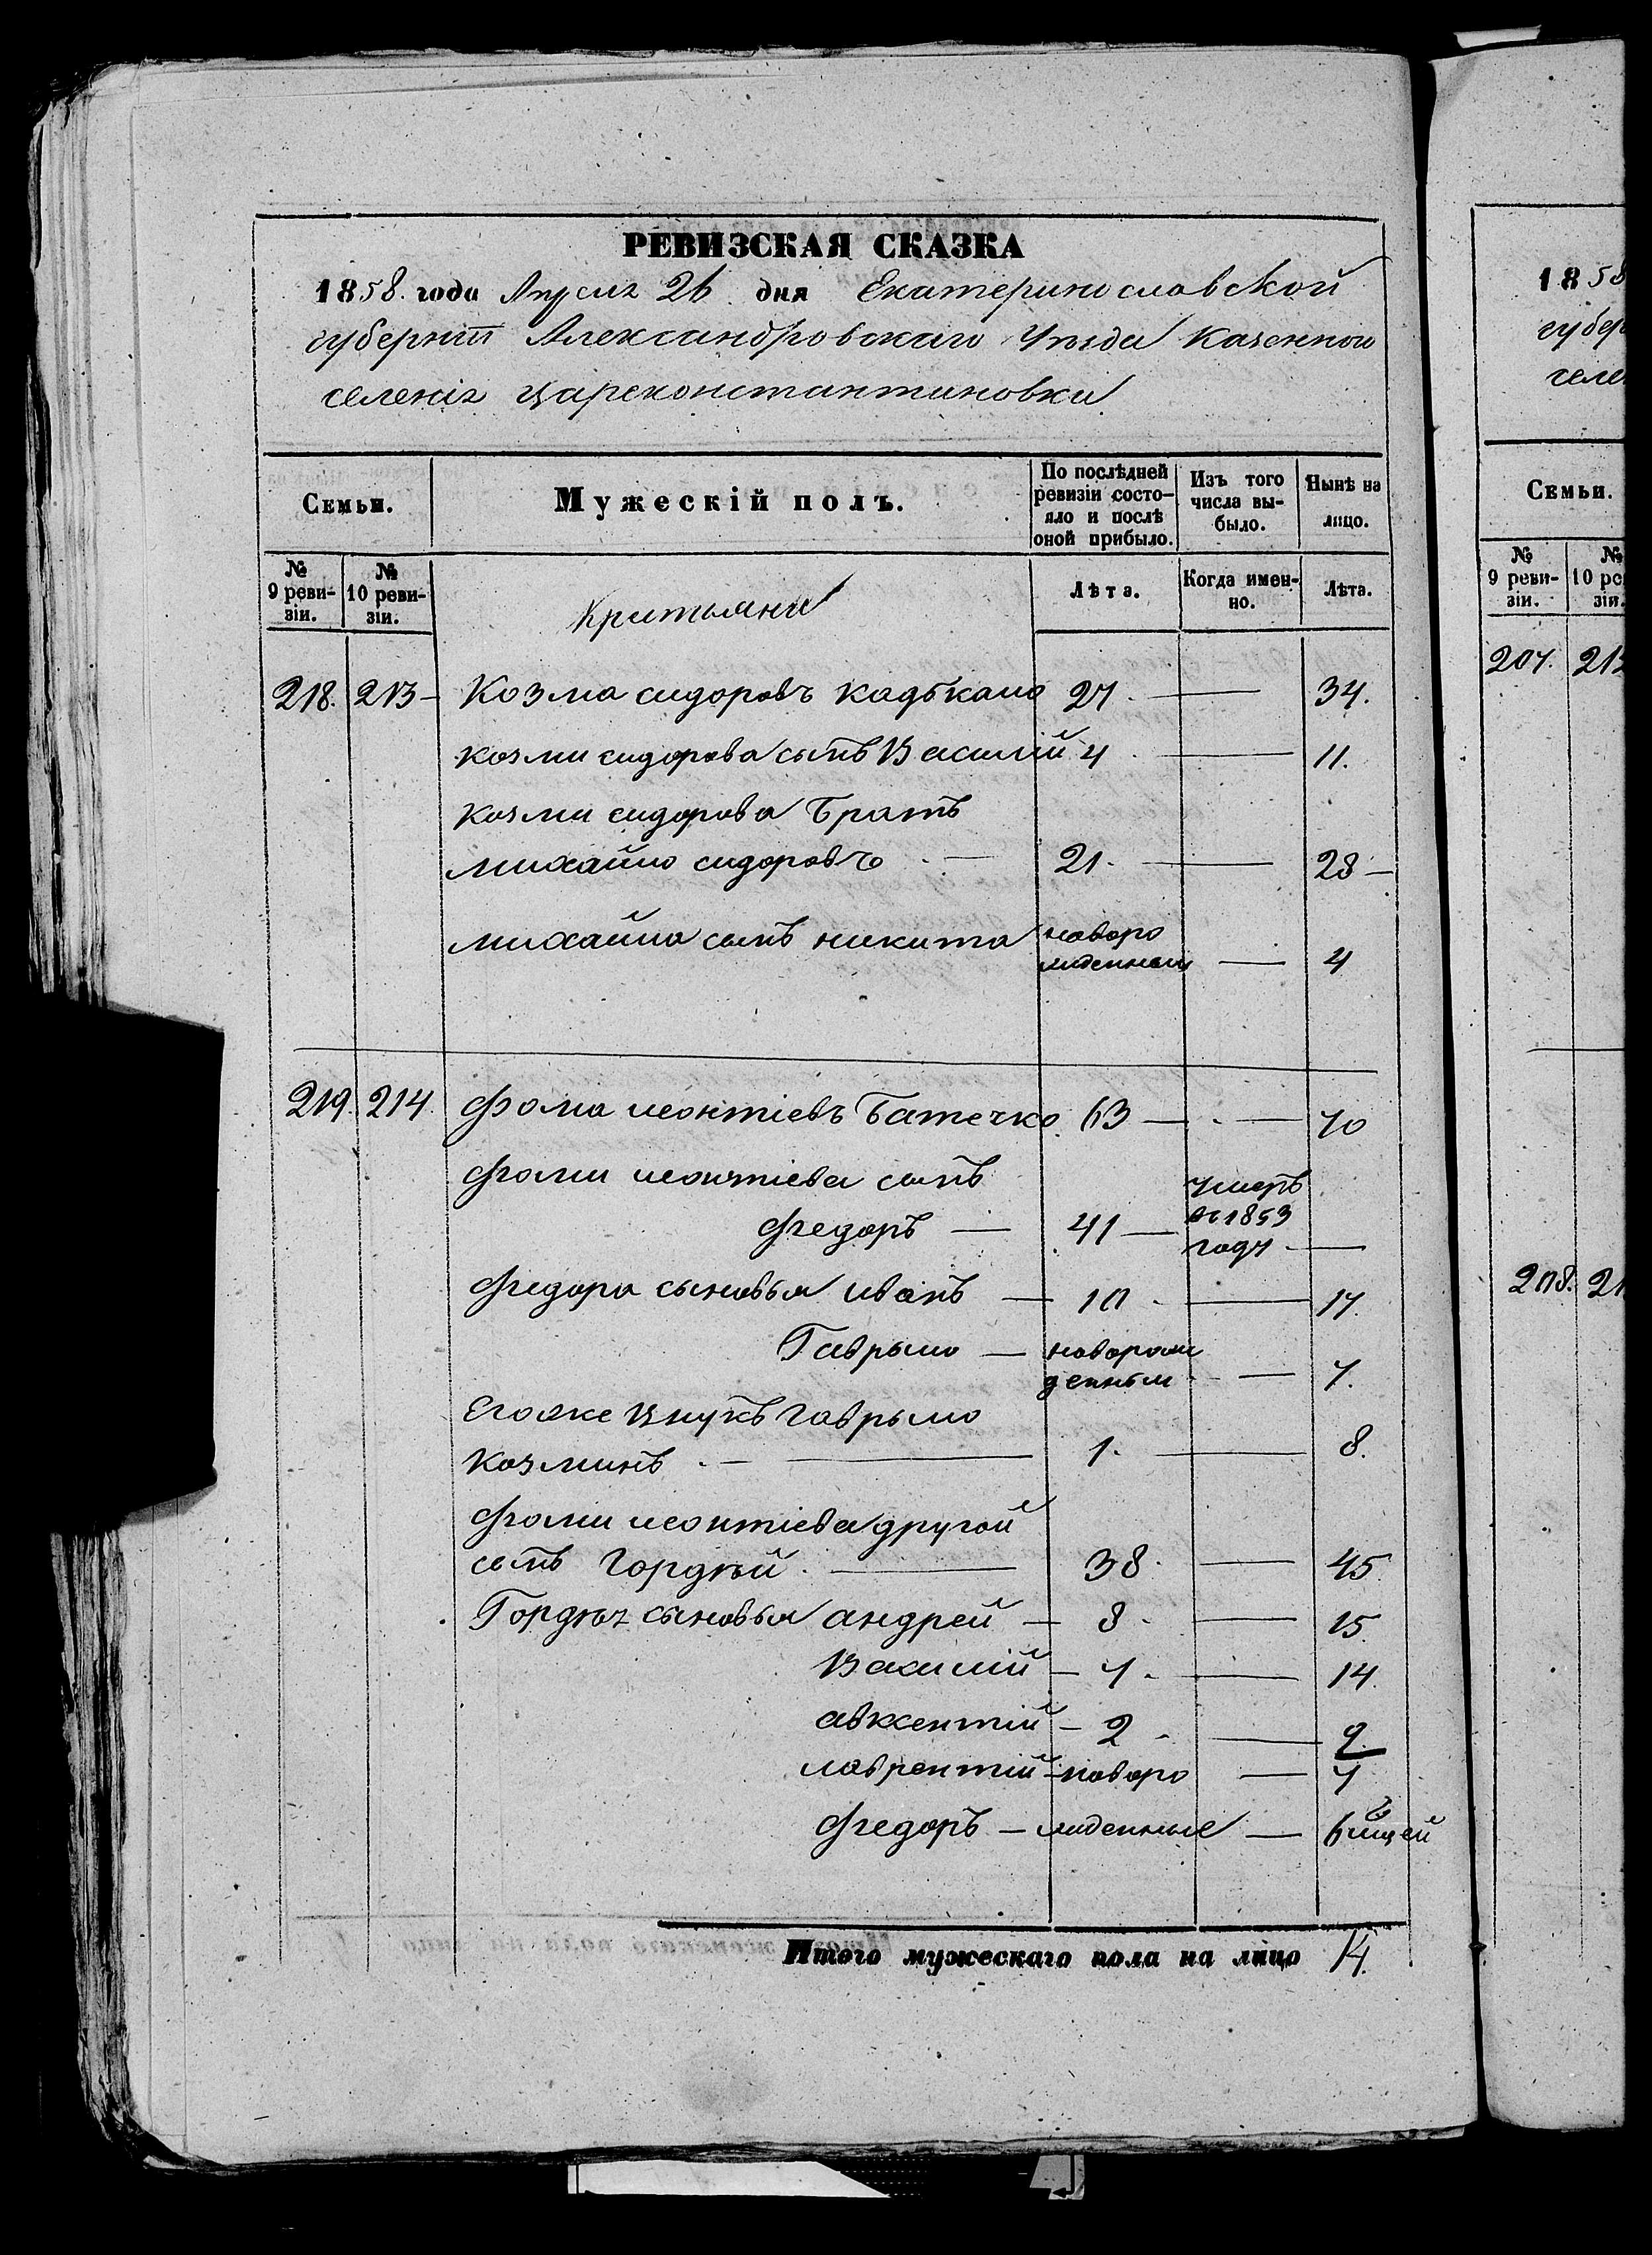 РЕВИЗСКАЯ СКАЗКА
1858. года Апреля 26 дня Екатеринославской
губерніи Александровскаго Уезда Казенного
селенія Цареконстантиновки
Семьи.
Мужескій полъ.
По послѣдней ревизіи состо-
яло и послѣ оной прибыло.
Изъ того числа вы-
было.
Нынѣ на лицо.
№ 9 реви-
зіи.
№ 10 реви-
зіи.
Крестьяни
Лѣта.
Когда имен-
но.
Лѣта.
218. 213 Козма сидоровъ 27. — 34.
козми сидорова сынъ Василій 4 — 11.
козми сидорова братъ
михайло сидоровъ — 21. — 28 —
михайла сынъ никита новоро
жденный — 4
219. 214. Фома леонтіевъ Батечко 63 — 70
фоми леонтіева сынъ
федоръ — 41 — умеръ
в 1853
году —
Федора сыновья иванъ — 10 — 17.
Гаврыло — новорож
денный — 7.
Егоже внукъ гаврыло
козминъ — 1. — 8.
фоми леонтіева другой
сынъ гордѣй. — 38. — 45.
Гордѣя сыновья андрей — 8 — 15.
Василій — 7. — 14.
авксентій — 2 — 9.
лаврентій — новоро — 7
федоръ — жденные — 6 мцей
Итого мужескаго пола на лицо 14.
1858
губер
селе
Семьи.
№ 9 реви-
зіи.
№ 10 ре
зіи.
207. 212
208. 21